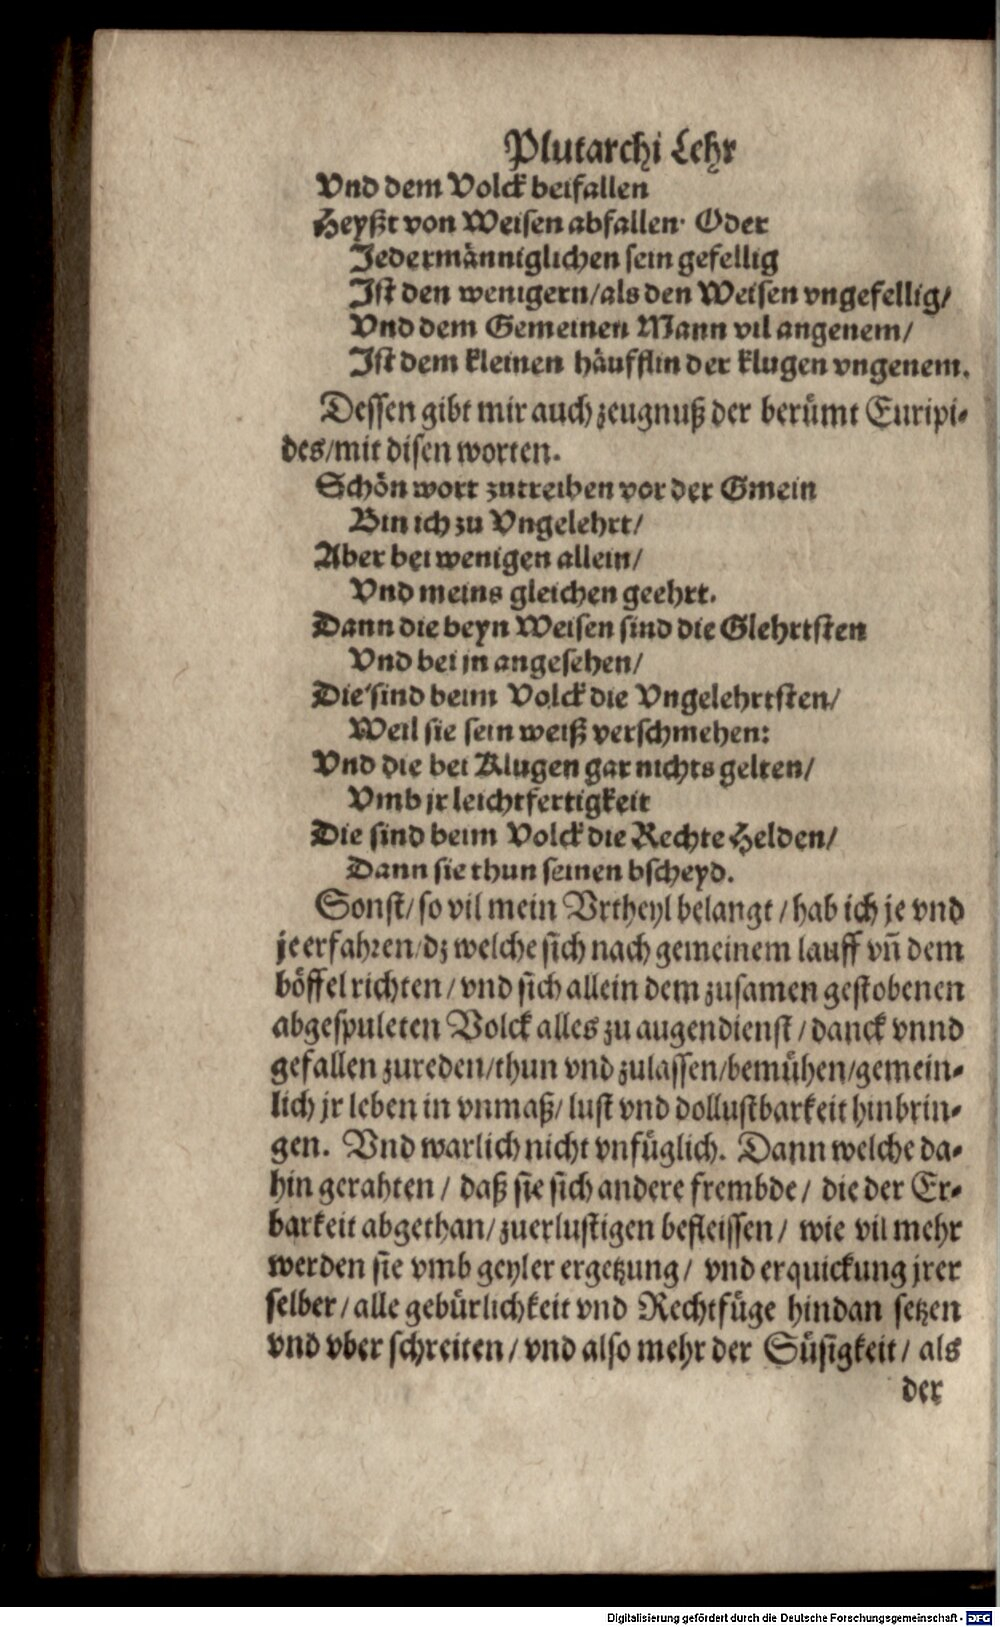 Plutarchi Lehr
Vnd dem Volck beifallen
Heyßt von Weisen abfallen· Oder
Jedermänniglichen sein gefellig
Jst den wenigern/als den Weisen vngefellig/
Vnd dem Gemeinen Mann vil angenem/
Jst dem kleinen häufflin der klugen vngenem.
Dessen gibt mir auch zeugnuß der berümt Euripi-
des/mit disen worten.
Schön wort zutreiben vor der Gmein
Bin ich zu Vngelehrt/
Aber bei wenigen allein/
Vnd meins gleichen geehrt.
Dann die beyn Weisen sind die Glehrtsten
Vnd bei jn angesehen/
Die sind beim Volck die Vngelehrtsten/
Weil sie sein weiß verschmehen:
Vnd die bei Klugen gar nichts gelten/
Vmb jr leichtfertigkeit
Die sind beim Volck die Rechte Helden/
Dann sie thun seinen bscheyd.
Sonst/ so vil mein Vrtheyl belangt / hab ich je vnd
je erfahren/dz welche sich nach gemeinem lauff vñ dem
böffel richten / vnd sich allein dem zusamen gestobenen
abgespuleten Volck alles zu augendienst / danck vnnd
gefallen zureden/thun vnd zulassen/bemühen/gemein-
lich jr leben in vnmaß/ lust vnd dollustbarkeit hinbrin-
gen. Vnd warlich nicht vnfüglich. Dann welche da-
hin gerahten / daß sie sich andere frembde / die der Er-
barkeit abgethan/ zuerlustigen befleissen / wie vil mehr
werden sie vmb geyler ergetzung/ vnd erquickung jrer
selber / alle gebürlichkeit vnd Rechtfüge hindan setzen
vnd vber schreiten / vnd also mehr der Süsigkeit / als
der
Digitalisierung gefördert durch die Deutsche Forschungsgemeinschaft - DFG